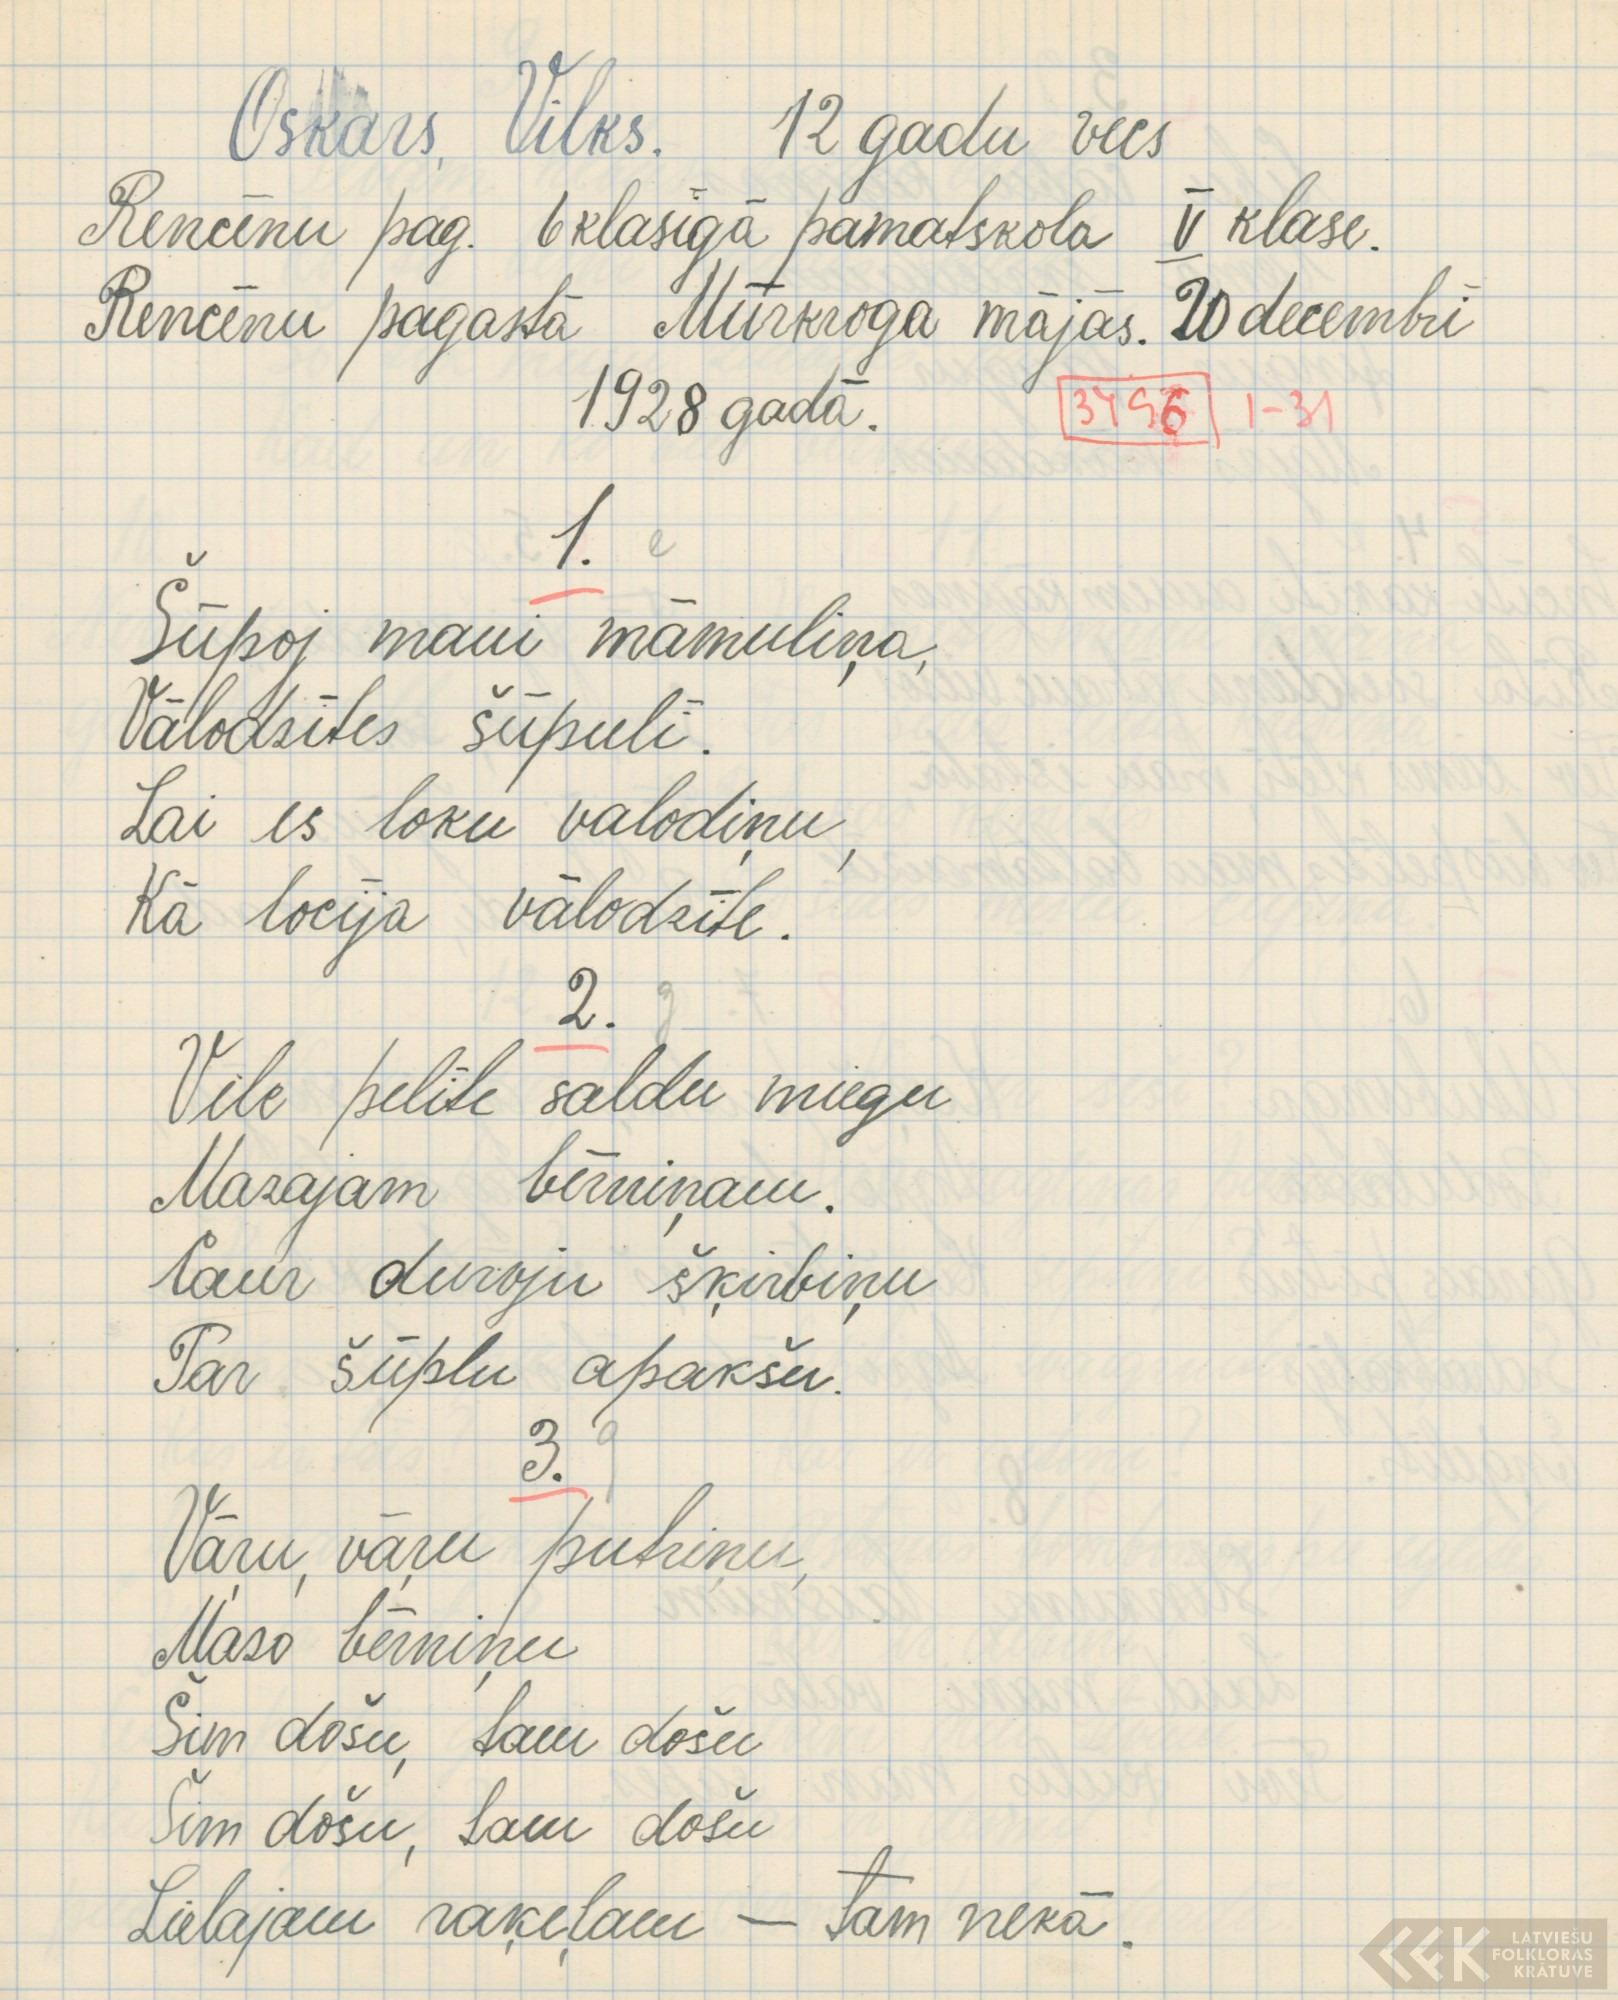 Oskars, Vilks. 12 gadu vecs
Rencēnu pag. 6 klasīgā pamatskola V klase.
Rencēnu pagastā Mūrkroga mājās. 20 decembrī
1928 gadā. 3496 1-31
1. e
Šūpoj mani māmuliņa,
Vālodzītes šūpulī.
Lai es loku valodiņu,
Kā locīja vālodzīte.
2. g
Vile pelīte saldu miegu
Mazajam bērniņam.
Caur duroju šķirbiņu
Par šūplu apakšu.
3. g
Vāŗu, vāŗu putriņu,
Mazo bērniņu
Šim došu, tam došu
Šim došu, tam došu
Lielajam raķeļam — tam nekā.
LATVIEŠU
FOLKLORAS
KRĀTUVE